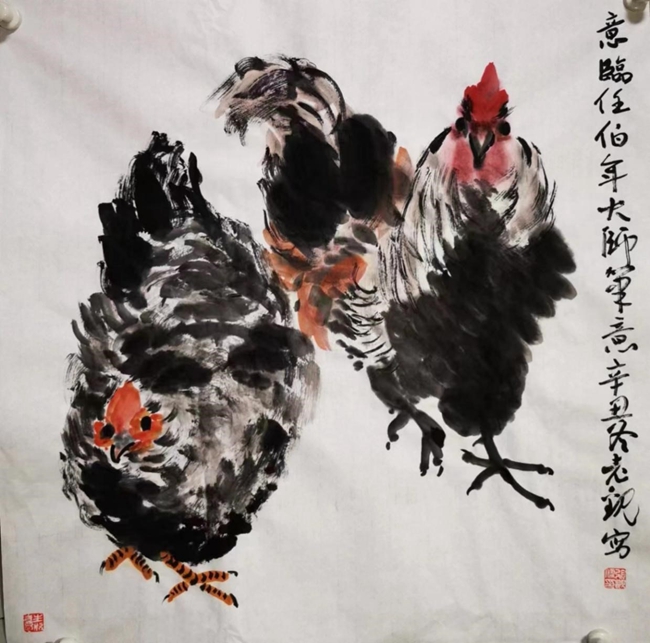 意臨任伯年大師筆意辛丑冬老观写